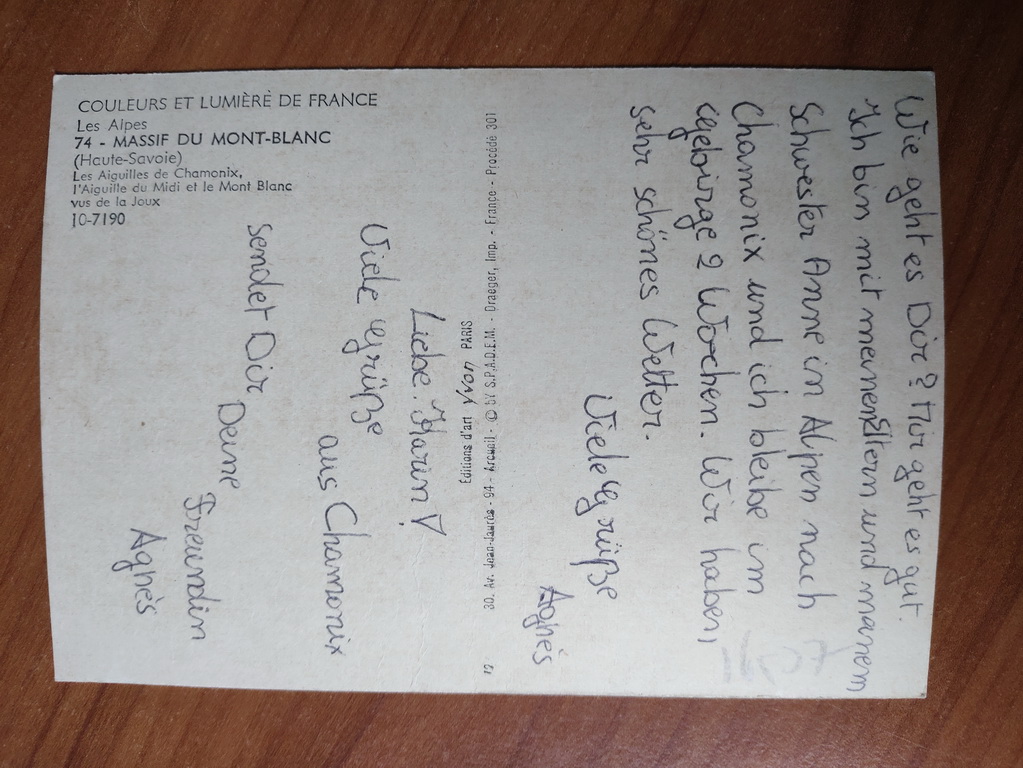 COULEURS ET LUMIÈRE DE FRANCE
Les Alpes
74 - MASSIF DU MONT-BLANC
(Haute-Savoie)
Les Aiguilles de Chamonix,
l'Aiguille du Midi et le Mont Blanc
vus de la Joux
10-7190
Liebe Karin!
Viele Grüße
aus Chamonix
sendet Dir
Deine
Freundin
Aghés
Editions d'art Yvon PARIS
30, Av. Jean-Jaurès - 94 - Arcueil - © by S.P.A.D.E.M. - Draeger, Imp. - France - Procédé 301
Wie geht es Dir? Mir geht es gut.
Ich bin mit meinen Eltern und meinem
Schwester Anne in Alpen nach
Chamonix und ich bleibe im
Gebirge 2 Wochen. Wir haben,
sehr schönes Wetter.
Viele Grüße
Aghés